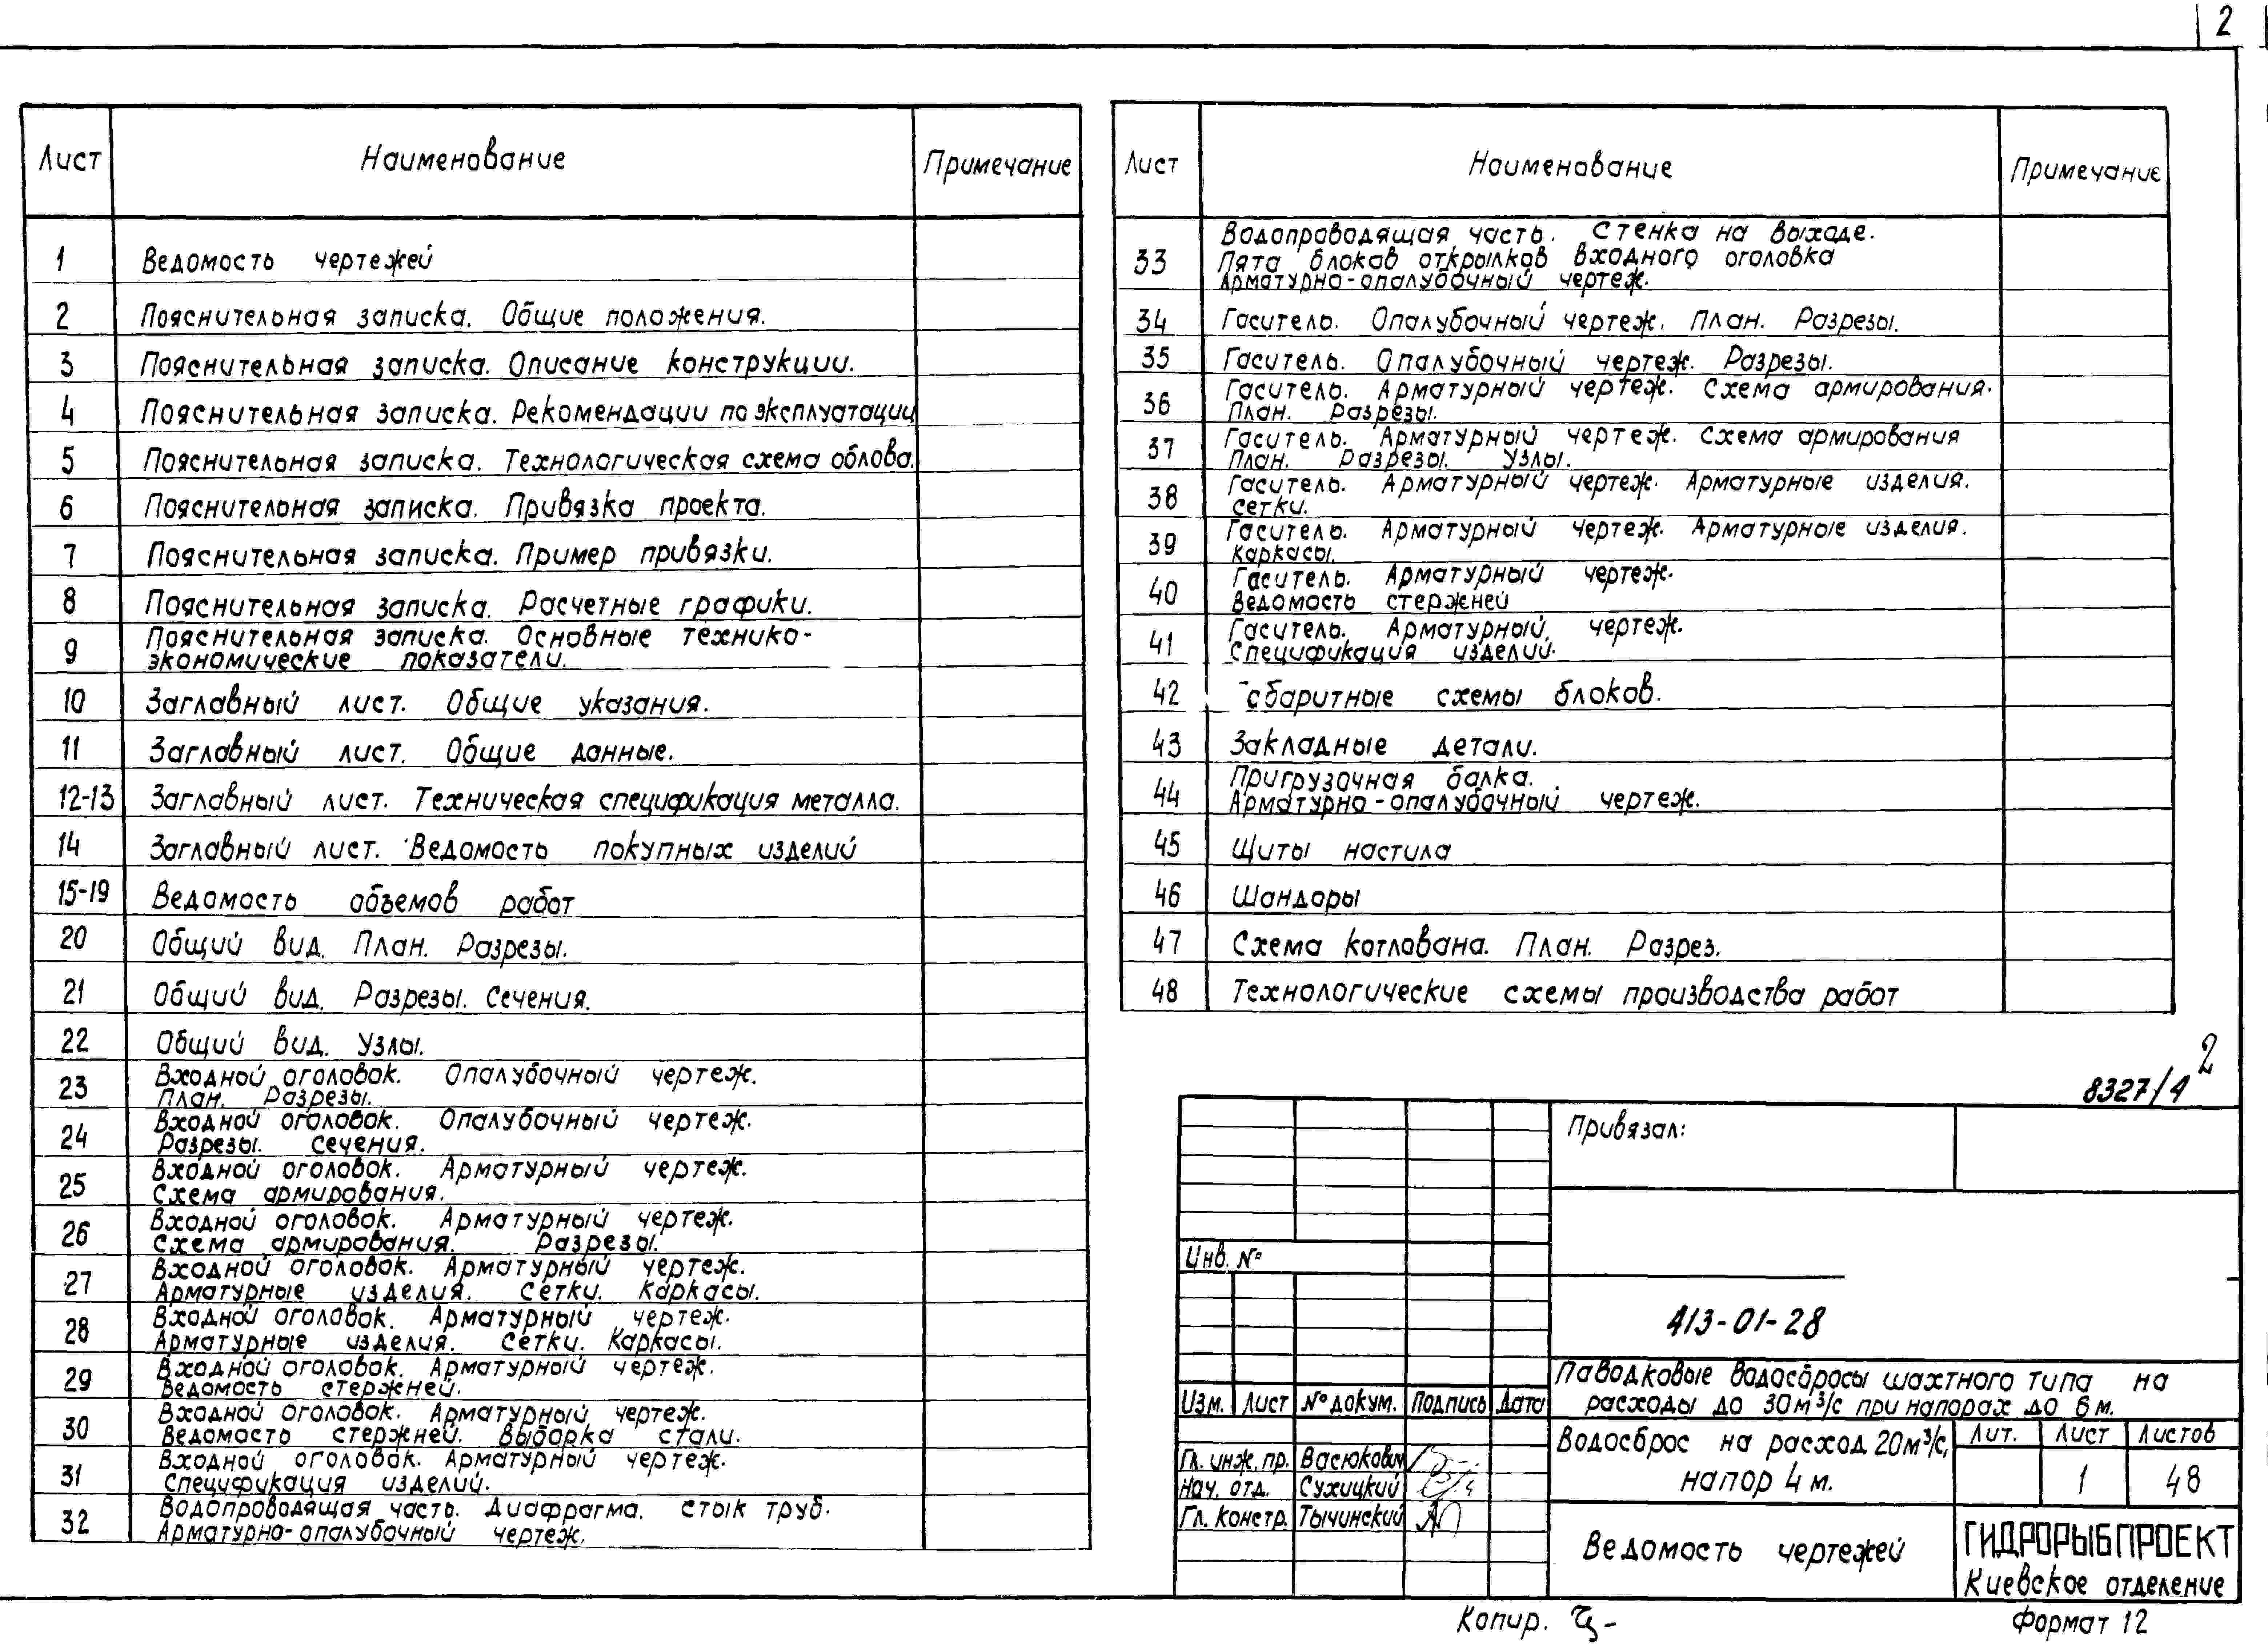 2
Лист Наименование Примечание
1 Ведомость чертежей
2 Пояснительная записка. Общие положения.
3 Пояснительная записка. Описание конструкции.
4 Пояснительная записка. Рекомендации по эксплуатации
5 Пояснительная записка. Технологическая схема облова.
6 Пояснительная записка. Привязка проекта.
7 Пояснительная записка. Пример привязки.
8 Пояснительная записка. Расчетные графики.
9 Пояснительная записка. Основные технико-
экономические показатели.
10 Заглавный лист. Общие указания.
11 Заглавный лист. Общие данные.
12-13 Заглавный лист. Техническая спецификация металла.
14 Заглавный лист. Ведомость покупных изделий
15-19 Ведомость объемов работ
20 Общий вид. План. Разрезы.
21 Общий вид. Разрезы. Сечения.
22 Общий вид. Узлы.
23 Входной оголовок. Опалубочный чертеж.
План. Разрезы.
24 Входной оголовок. Опалубочный чертеж.
Разрезы. Сечения.
25 Входной оголовок. Арматурный чертеж.
Схема армирования.
26 Входной оголовок. Арматурный чертеж.
Схема армирования. Разрезы.
27 Входной оголовок. Арматурный чертеж.
Арматурные изделия. Сетки. Каркасы.
28 Входной оголовок. Арматурный чертеж.
Арматурные изделия. Сетки. Каркасы.
29 Входной оголовок. Арматурный чертеж.
Ведомость стержней.
30 Входной оголовок. Арматурный чертеж.
Ведомость стержней. Выборка стали.
31 Входной оголовок. Арматурный чертеж.
Спецификация изделий.
32 Водопроводящая часть. Диафрагма. Стык труб.
Арматурно-опалубочный чертеж.
Лист Наименование Примечание
33 Водопроводящая часть. Стенка на выходе.
Пята блоков открылков входного оголовка
Арматурно-опалубочный чертеж.
34 Гаситель. Опалубочный чертеж. План. Разрезы.
35 Гаситель. Опалубочный чертеж. Разрезы.
36 Гаситель. Арматурный чертеж. Схема армирования.
План. Разрезы.
37 Гаситель. Арматурный чертеж. Схема армирования
План. Разрезы. Узлы.
38 Гаситель. Арматурный чертеж. Арматурные изделия.
Сетки.
39 Гаситель. Арматурный чертеж. Арматурные изделия.
Каркасы.
40 Гаситель. Арматурный чертеж.
Ведомость стержней
41 Гаситель. Арматурный чертеж.
Спецификация изделий.
42 Габаритные схемы блоков.
43 Закладные детали.
44 Пригрузочная балка.
Арматурно-опалубочный чертеж.
45 Щиты настила
46 Шандоры
47 Схема котлована. План. Разрез.
48 Технологические схемы производства работ
8327/4 2
Привязал:
Инв. №
413-01-28
Паводковые водосбросы шахтного типа на
расходы до 30 м³/с при напорах до 6 м.
Изм. Лист № докум. Подпись Дата
Водосброс на расход 20 м³/с,
напор 4 м.
Лит. Лист Листов
1 48
Гл. инж. пр. Васюкович
Нач. отд. Сухицкий
Гл. констр. Тычинский
Ведомость чертежей
ГИДРОРЫБПРОЕКТ
Киевское отделение
Копир.
Формат 12